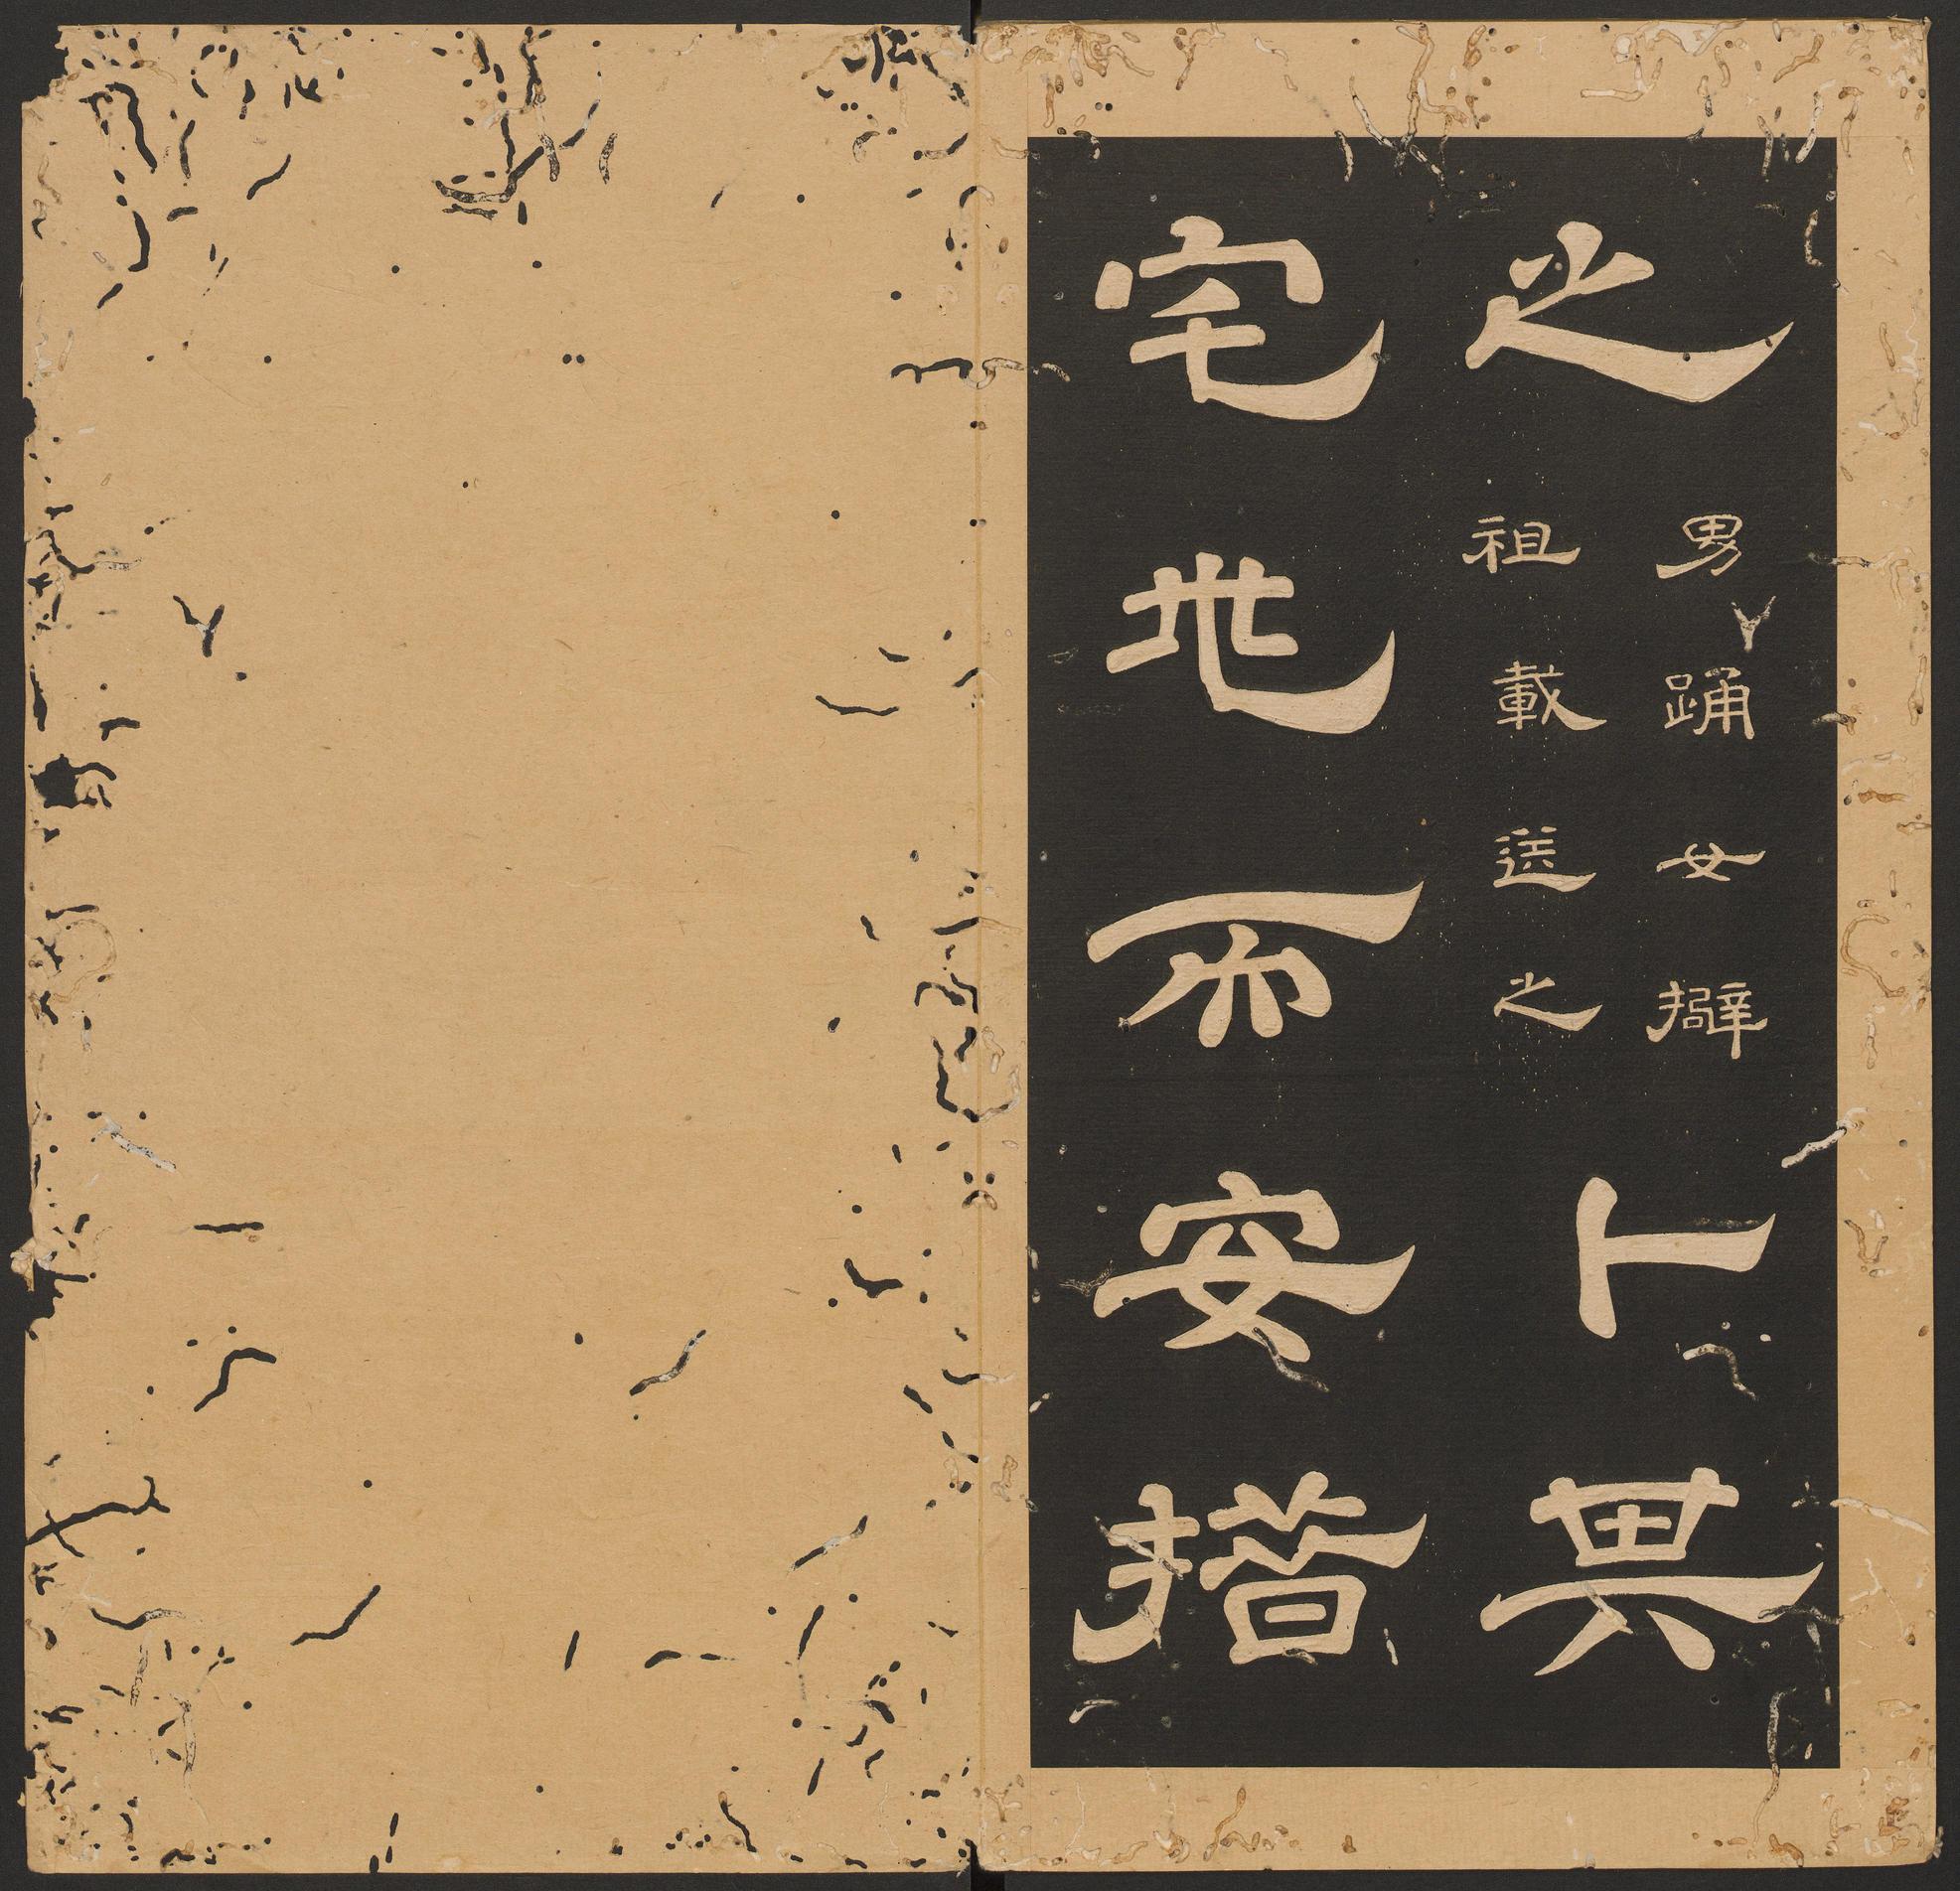 之
男踊女擗
祖載送之
卜其
宅地而安措